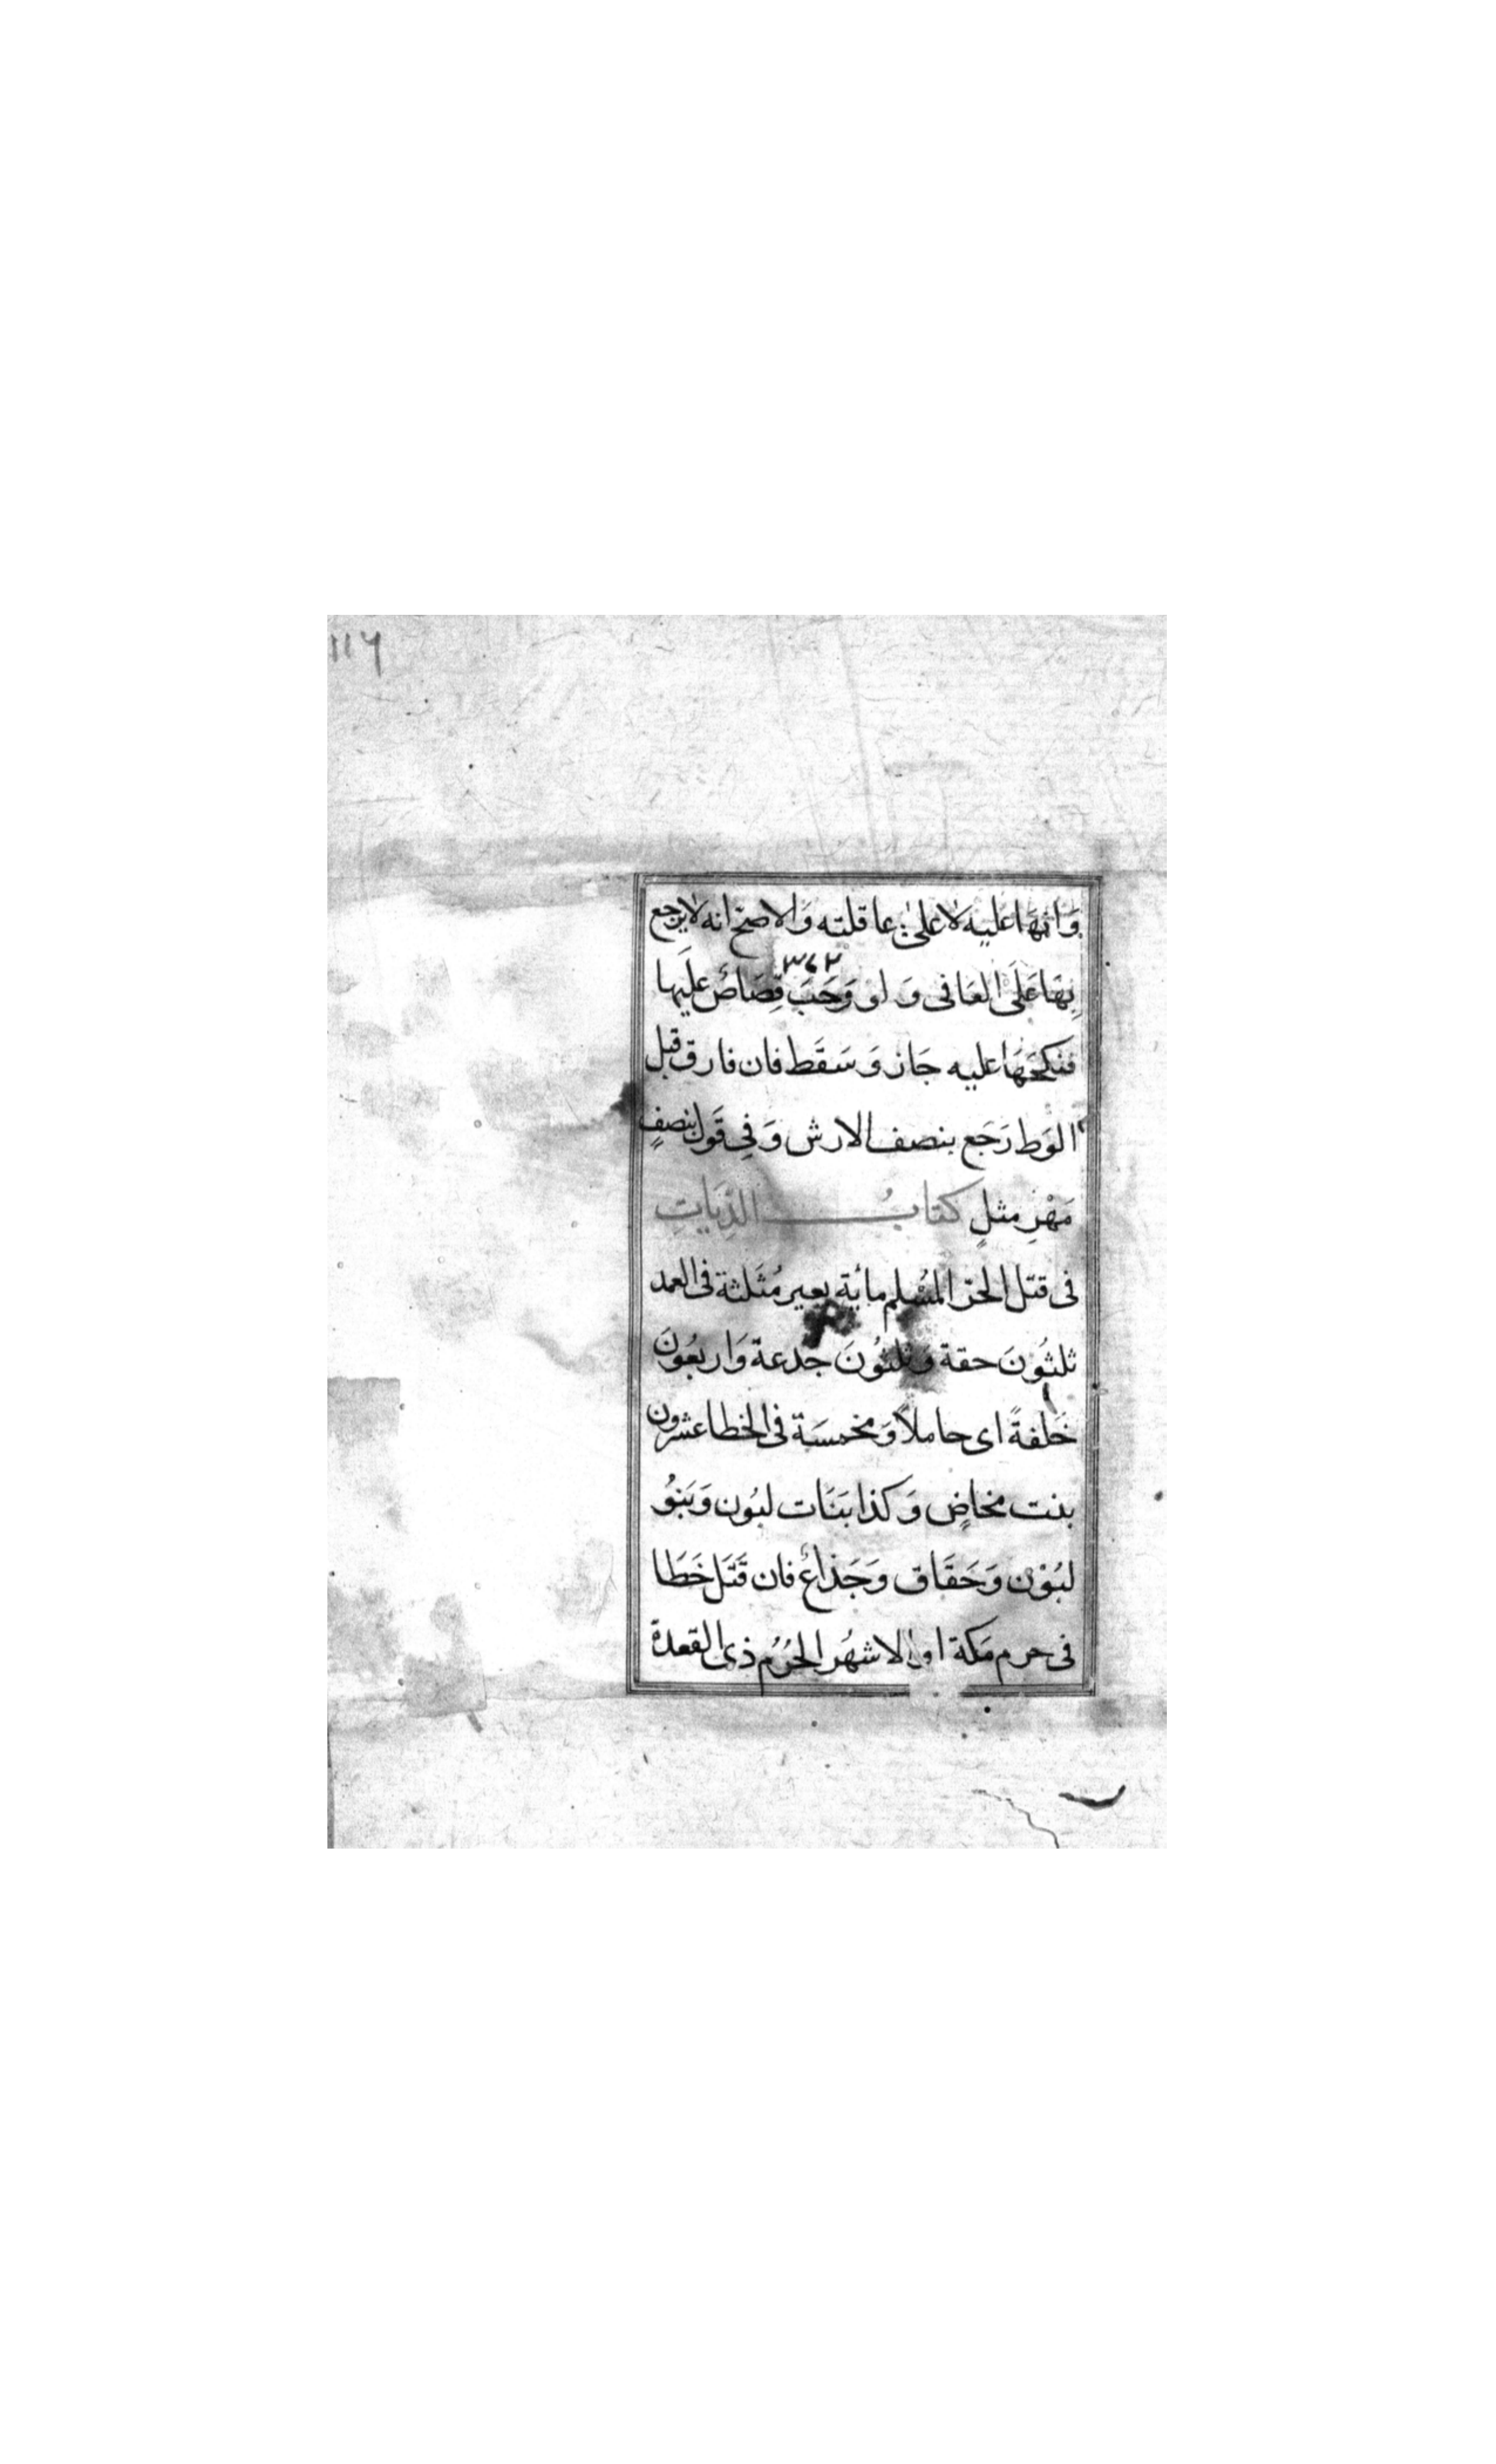 ١١٦
وَانها عليه لا على عاقلته وَالاصح انه لا يرجع
٣٧٢
بِهَا عَلَى العَافى وَ لو وَجَبَ قِصَاصٌ عليها
فنكحَهَا عليه جَاز وَ سَقَط فان فارق قبل
الوَطء رَجَع بنصف الارش وَفِي قَول بنصفِ
مَهْرِ مثلٍ كتابُ الدِّيَاتِ
فى قتل الحرّ المُسْلم مائة بعير مُثَلثة فى العمد
ثلثُونَ حقة وثلثُونَ جدعة وَاربعُونَ
خَلفةً اى حاملاً وَمخمسَة فى الخطا عشرون
بنت مخاضٍ وَكذا بنَات لبُون وَبَنوُ
لبُوْن وَحَقَاق وَجَذاعٌ فان قَتَل خَطَا
فى حرم مَكة او الاشهُر الحُرُم ذى القعدة